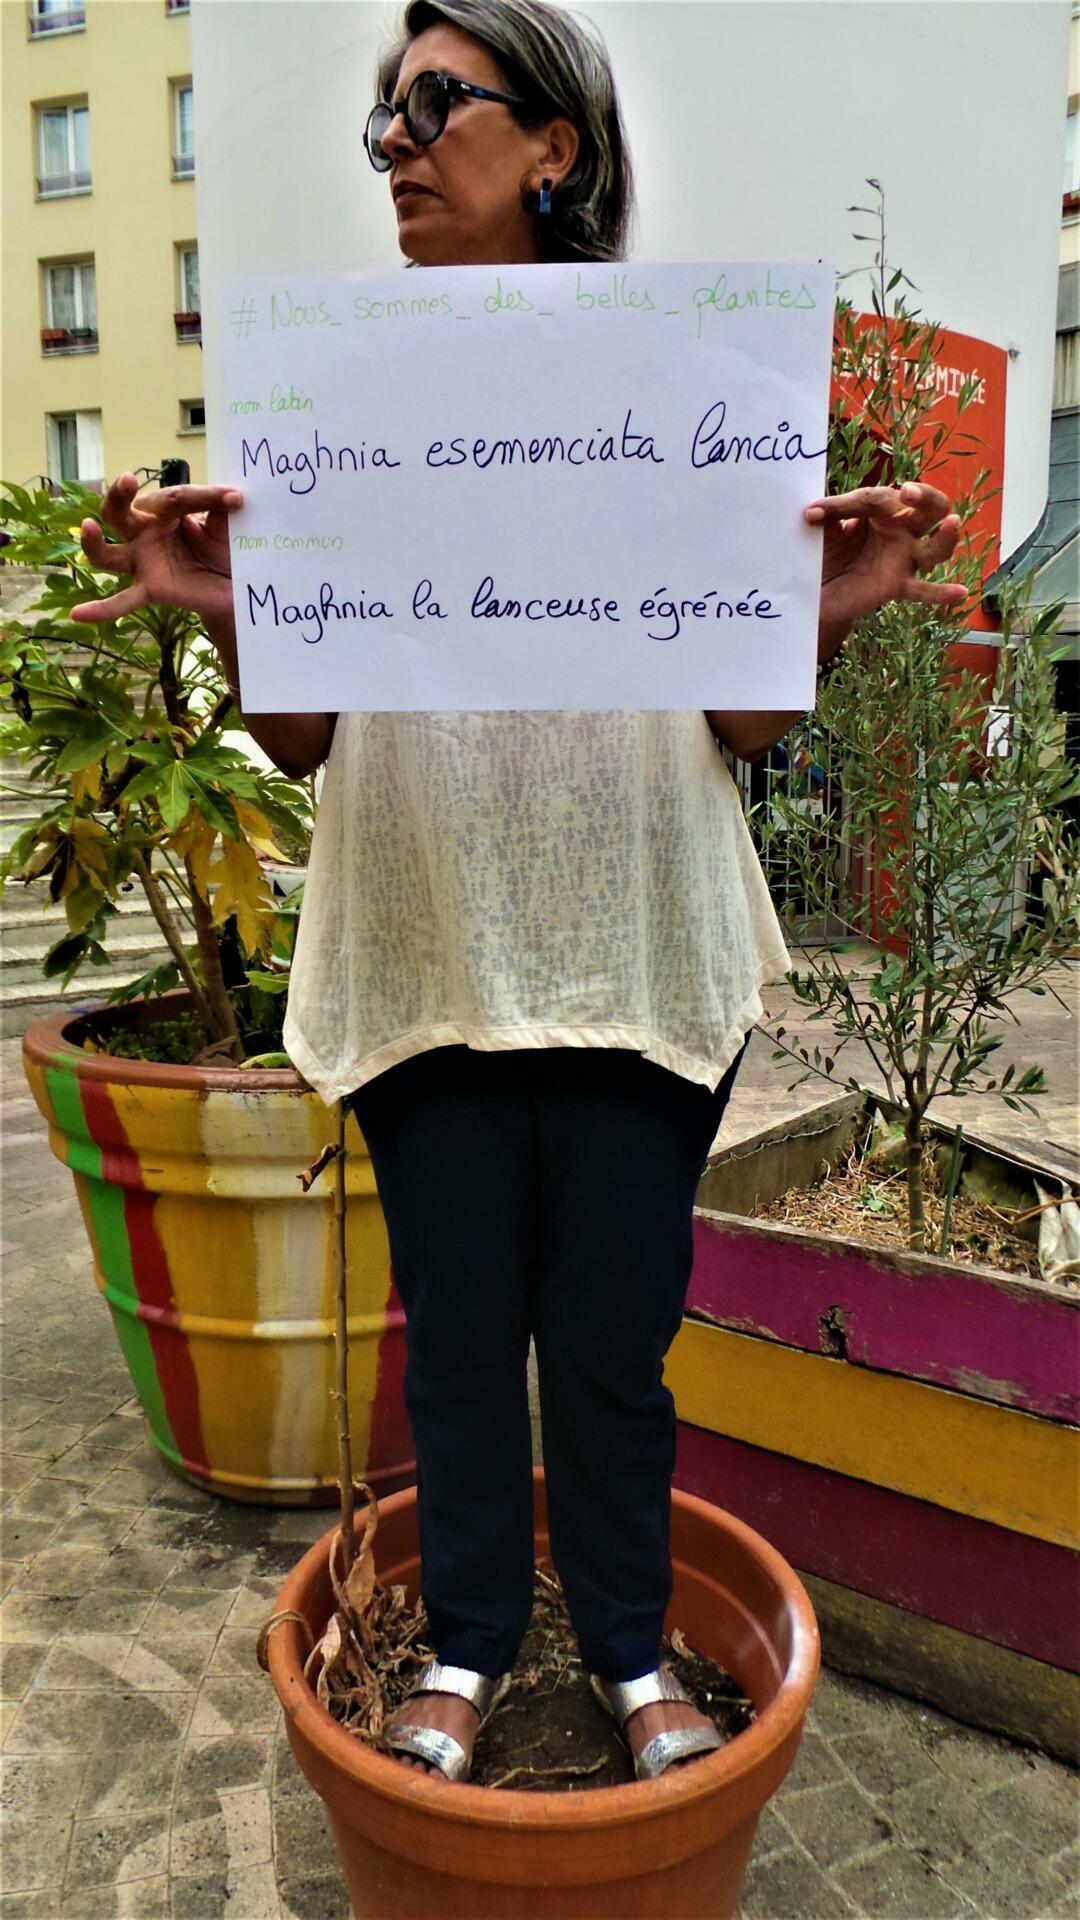 # Nous_ sommes_ des_ belles_ plantes
nom latin
Maghnia esemenciata lancia
nom commun
Maghnia la lanceuse égrénée